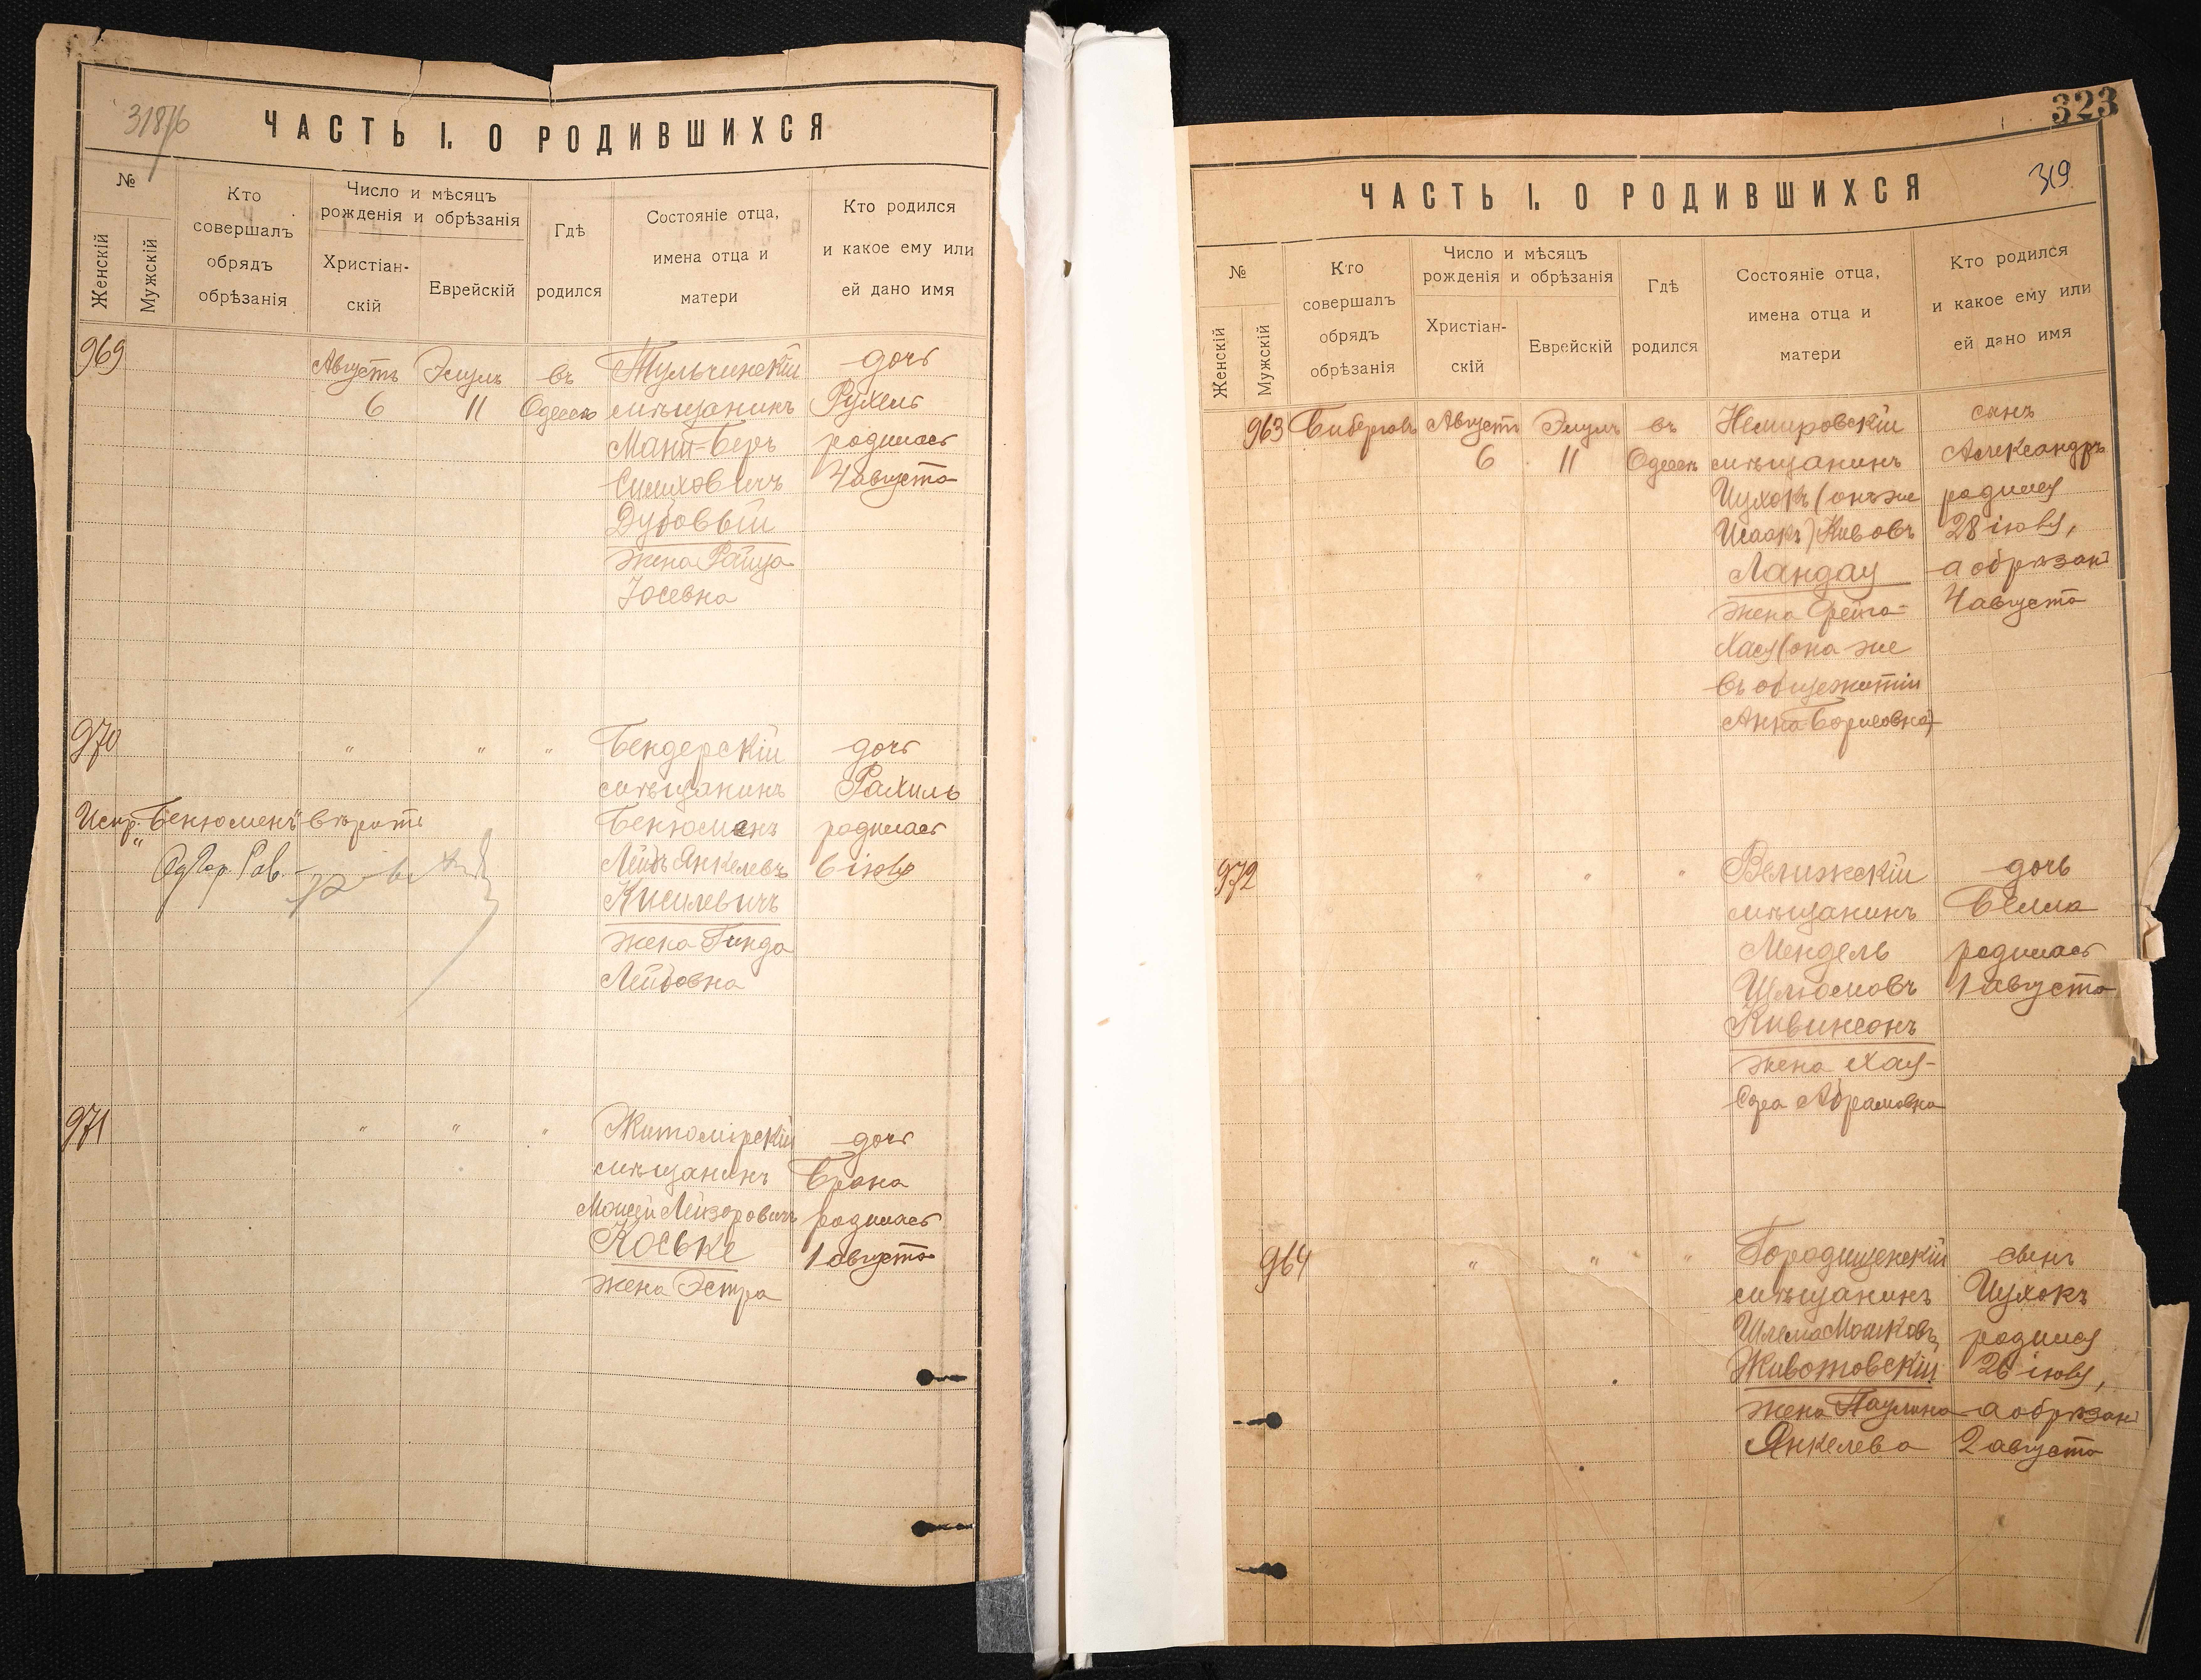 318/16
ЧАСТЬ I. О РОДИВШИХСЯ
№
Женскій
Мужскій
Кто
совершалъ
обрядъ
обрѣзанія
Число и мѣсяцъ
рожденія и обрѣзанія
Христіан-
скій
Еврейскій
Гдѣ
родился
Состояніе отца,
имена отца и
матери
Кто родился
и какое ему или
ей дано имя
969 Августъ Элулъ въ Тульчинскій дочь
6 11 Одессѣ мѣщанинъ Рухель
Мани-Беръ родилась
Симховичъ 4 августа
Дубовый
жена Раица
Іосевна
970 " " " Бендерскій дочь
мѣщанинъ Рахиль
Испр. „Бенюменъ" вѣрить Бенюменъ родилась
Од. Гор. Рав. Лейбъ Янкелевъ 6 іюля
Кисилевичъ
жена Гинда
Лейбовна
971 " " " Житомірскій дочь
мѣщанинъ Брана
Мошей Лейзоровичъ родилась
Коське 1 августа
жена Эстра
323
319
ЧАСТЬ I. О РОДИВШИХСЯ
№
Женскій
Мужскій
Кто
совершалъ
обрядъ
обрѣзанія
Число и мѣсяцъ
рожденія и обрѣзанія
Христіан-
скій
Еврейскій
Гдѣ
родился
Состояніе отца,
имена отца и
матери
Кто родился
и какое ему или
ей дано имя
963 Бибергалъ Августъ Элулъ въ Немировскій сынъ
6 11 Одессѣ мѣщанинъ Александръ
Ицхокъ (онъ же родился
Исаакъ) Кивовъ 28 іюля,
Ландау а обрѣзанъ
жена Фейга- 4 августа
Хася (она же
въ общежитіи
Анна Борисовна)
972 " " " Велижскій дочь
мѣщанинъ Белла
Мендель родилась
Шлюмовъ 1 августа
Кивинсонъ
жена Хая-
Сора Абрамовна
964 " " " Городищенскій сынъ
мѣщанинъ Ицхокъ
Шлема Мошковъ родился
Животовскій 26 іюля,
жена Паулина а обрѣзанъ
Янкелева 2 августа